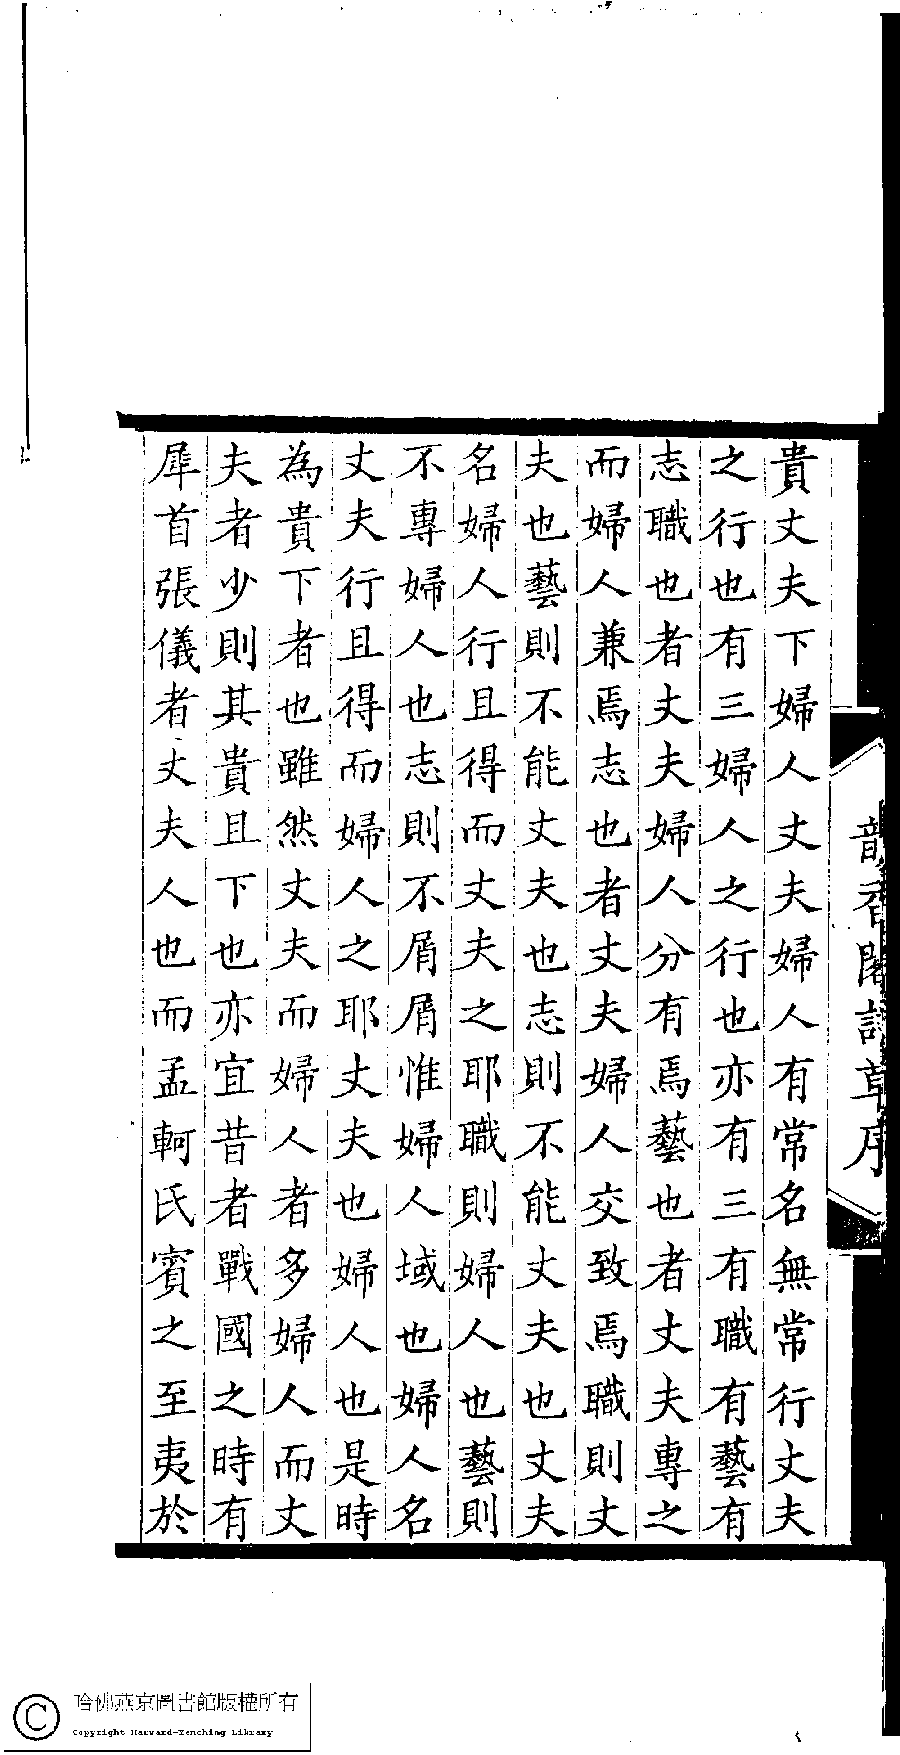 貴丈夫下婦人丈夫婦人有常名無常行丈夫
之行也有三婦人之行也亦有三有職有藝有
志職也者丈夫婦人分有焉藝也者丈夫專之
而婦人兼焉志也者丈夫婦人交致焉職則丈
夫也藝則不能丈夫也志則不能丈夫也丈夫
名婦人行且得而丈夫之耶職則婦人也藝則
不專婦人也志則不屑屑惟婦人域也婦人名
丈夫行且得而婦人之耶丈夫也婦人也是時
為貴下者也雖然丈夫而婦人者多婦人而丈
夫者少則其貴且下也亦宜昔者戰國之時有
犀首張儀者丈夫人也而孟軻氏賓之至夷於
韻香閣詩草序
哈佛燕京圖書館版權所有
Copyright Harvard-Yenching Library